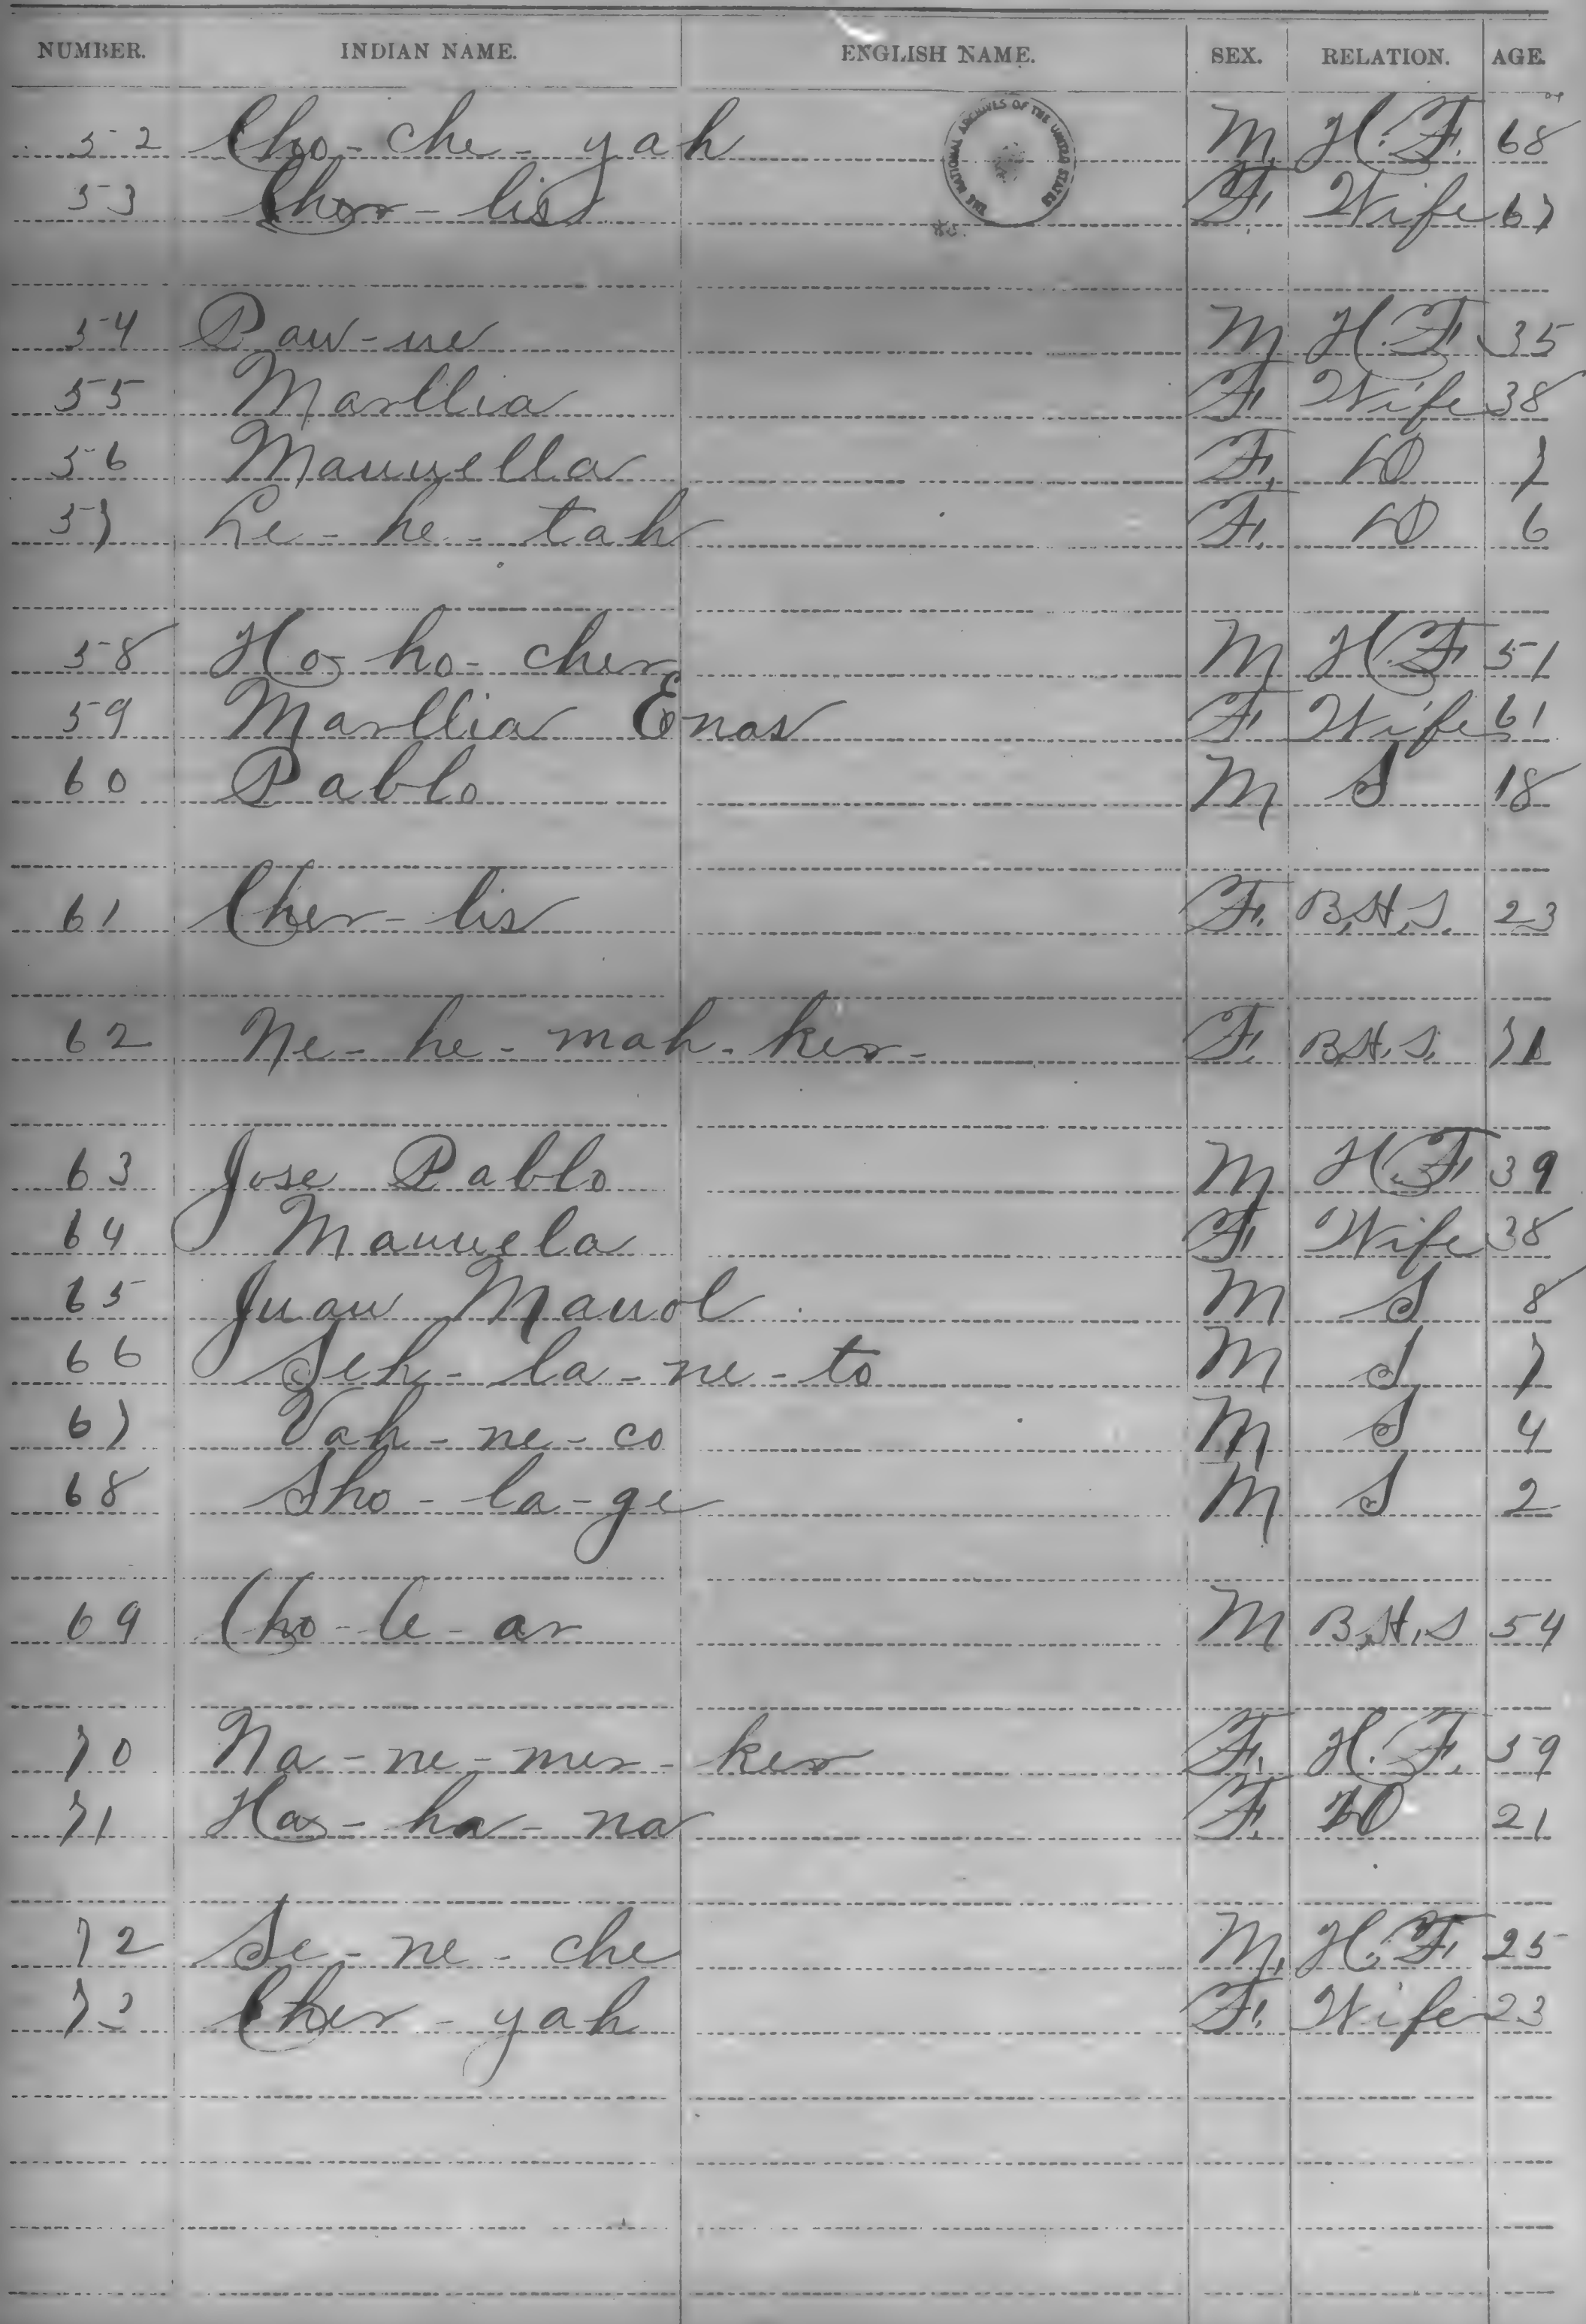 NUMBER. INDIAN NAME. ENGLISH NAME. SEX. RELATION. AGE.
THE NATIONAL ARCHIVES OF THE UNITED STATES
52 Cho-che-yah M. H.F. 68
53 Cher-lis F. Wife 67
54 Paw-ne M H.F. 35
55 Marllia F. Wife 38
56 Manuella F. D 7
57 Le-he-tah F. D 6
58 Ho-ho-cher M H.F. 51
59 Marllia Enas F Wife 61
60 Pablo M S 18
61 Cher-lis F. B.H.S. 23
62 Ne-he-mah-ker- F. B.H.S. 71
63 Jose Pablo M H.F. 39
64 Manuela F. Wife 38
65 Juan Manol M S 8
66 Seh-la-ne-to M S 7
67 Vah-ne-co M S 4
68 Sho-la-ge M S 2
69 Cho-le-ar M B.H.S 54
70 Na-ne-mer-ker F. H.F. 59
71 Ha-ha-na F. D 21
72 Se-ne-che M. H.F. 25
73 Cher-yah F. Wife 23